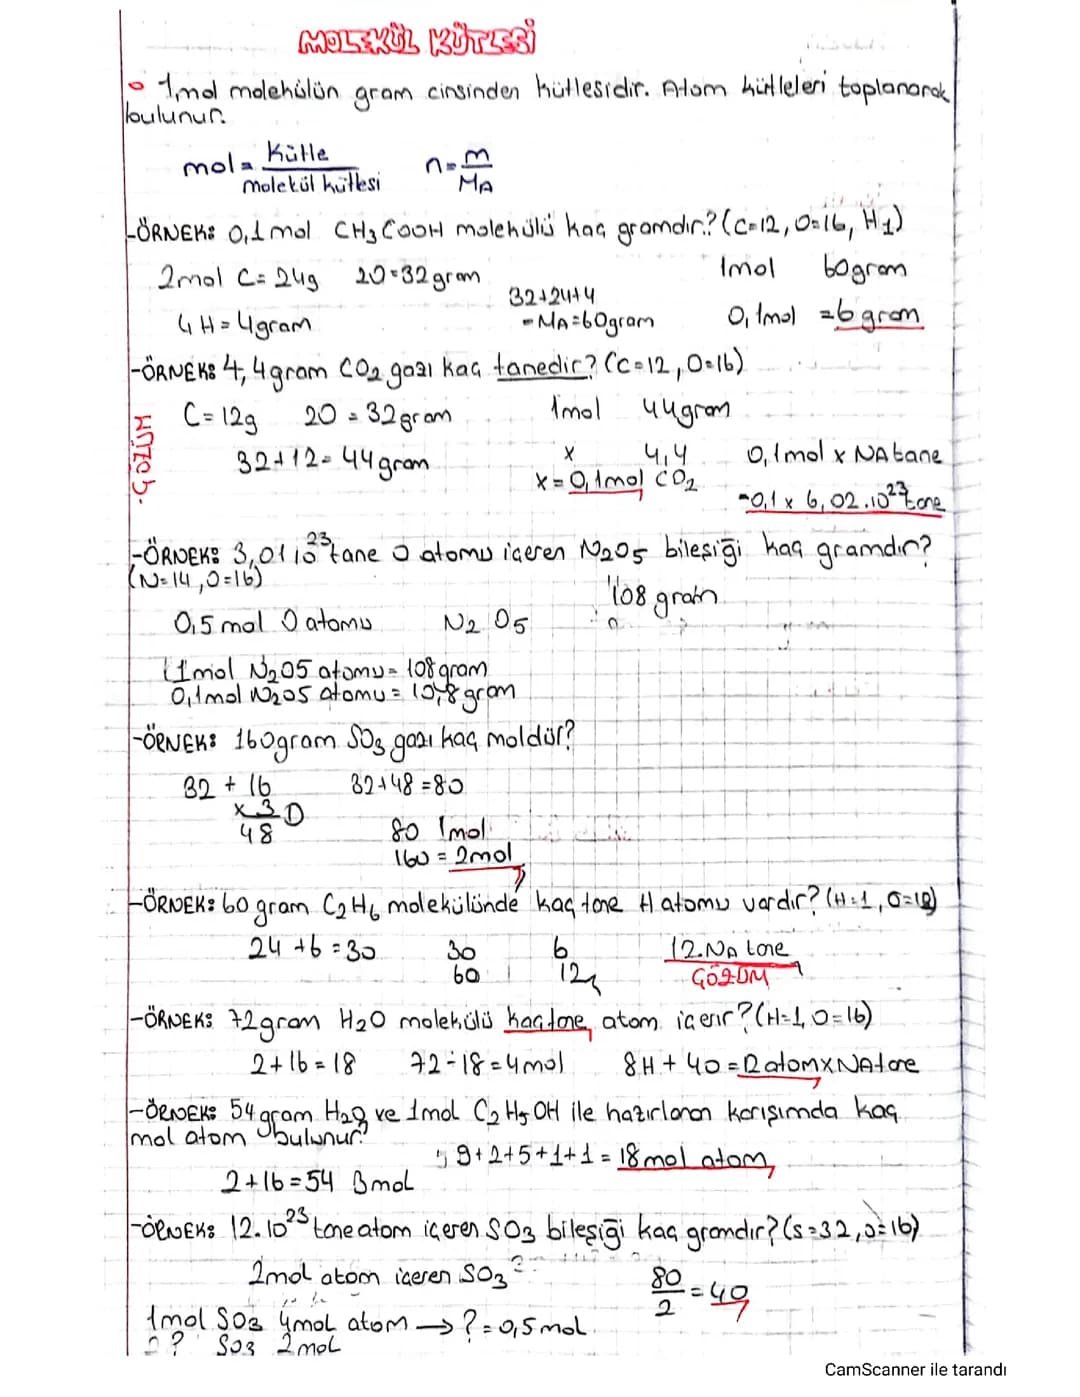 MOLEKÜL KÜTLESİ
1mol molekülün gram cinsinden kütlesidir. Atom kütleleri toplanarak
bulunur.
mol = Kütle / molekül kütlesi n = m / MA
-ÖRNEK: 0,1 mol CH3COOH molekülü kaç gramdır? (C=12, O=16, H1)
2mol C = 24g 2O=32gram 1mol 60gram
32+24+4
4H = 4gram - MA=60gram 0,1mol =6 gram
-ÖRNEK: 4,4gram CO2 gazı kaç tanedir? (C=12, O=16)
ÇÖZÜM
C=12g 2O = 32gram 1mol 44gram
32+12=44gram x 4,4 0,1mol x NA tane
x = 0,1mol CO2 =0,1 x 6,02.10^23 tane
-ÖRNEK: 3,01 10^23 tane O atomu içeren N2O5 bileşiği kaç gramdır?
(N=14, O=16)
108 gram
0,5 mol O atomu N2 O5
1mol N2O5 atomu = 108gram
0,1mol N2O5 atomu = 10,8 gram
-ÖRNEK: 160gram SO3 gazı kaç moldür?
32 + 16 32+48=80
x 3 O
48 80 1mol
160 = 2mol
-ÖRNEK: 60 gram C2H6 molekülünde kaç tane H atomu vardır? (H=1, O=12)
24 +6 = 30 30 6 12.NA tane
60 12 ÇÖZÜM
-ÖRNEK: 72gram H2O molekülü kaç tane atom içerir? (H=1, O=16)
2+16 = 18 72÷18=4mol 8H + 4O = 12 atom x NA tane
-ÖRNEK: 54 gram H2O ve 1mol C2H5OH ile hazırlanan karışımda kaç
mol atom bulunur?
9+2+5+1+1 = 18mol atom
2+16=54 3mol
-ÖRNEK: 12.10^23 tane atom içeren SO3 bileşiği kaç gramdır? (S=32, O=16)
2mol atom içeren SO3 ? 80/2 = 40
1mol SO3 4mol atom → ? = 0,5mol
? SO3 2mol
CamScanner ile tarandı